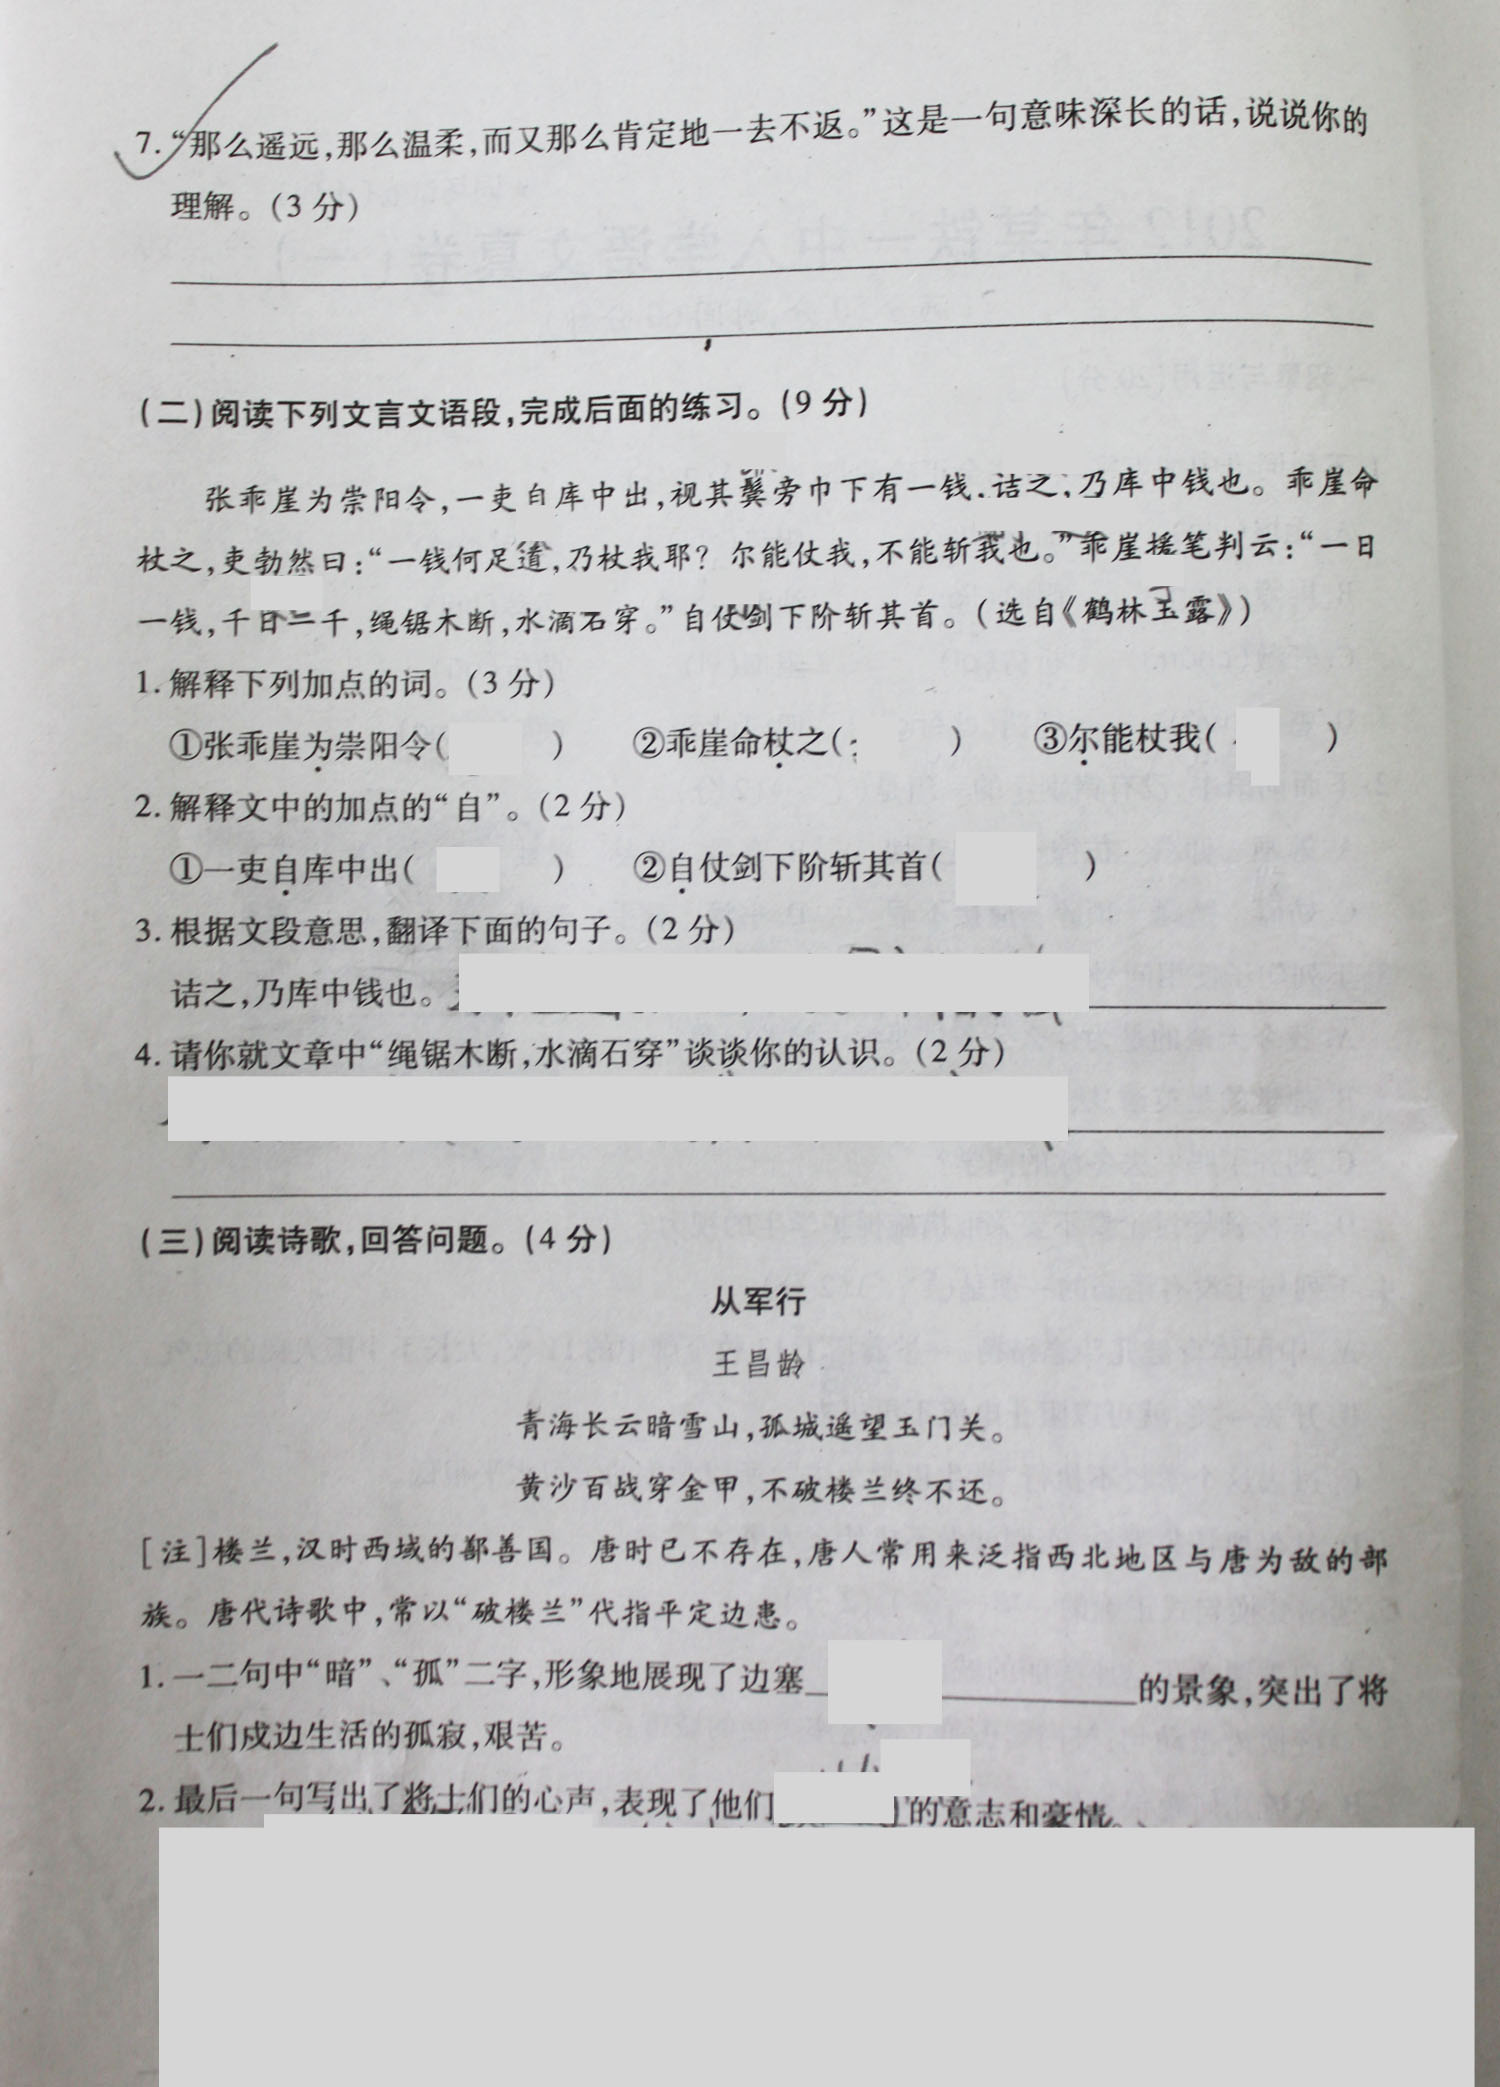 7. “那么遥远,那么温柔,而又那么肯定地一去不返。”这是一句意味深长的话,说说你的
理解。(3分)
(二)阅读下列文言文语段,完成后面的练习。(9分)
张乖崖为崇阳令,一吏自库中出,视其鬓旁巾下有一钱,诘之,乃库中钱也。乖崖命
杖之,吏勃然曰:“一钱何足道,乃杖我耶?尔能仗我,不能斩我也。”乖崖援笔判云:“一日
一钱,千日一千,绳锯木断,水滴石穿。”自仗剑下阶斩其首。(选自《鹤林玉露》)
1. 解释下列加点的词。(3分)
①张乖崖为崇阳令( ) ②乖崖命杖之( ) ③尔能杖我( )
2. 解释文中的加点的“自”。(2分)
①一吏自库中出( ) ②自仗剑下阶斩其首( )
3. 根据文段意思,翻译下面的句子。(2分)
诘之,乃库中钱也。
4. 请你就文章中“绳锯木断,水滴石穿”谈谈你的认识。(2分)
(三)阅读诗歌,回答问题。(4分)
从军行
王昌龄
青海长云暗雪山,孤城遥望玉门关。
黄沙百战穿金甲,不破楼兰终不还。
[注]楼兰,汉时西域的鄯善国。唐时已不存在,唐人常用来泛指西北地区与唐为敌的部
族。唐代诗歌中,常以“破楼兰”代指平定边患。
1. 一二句中“暗”、“孤”二字,形象地展现了边塞 的景象,突出了将
士们戍边生活的孤寂,艰苦。
2. 最后一句写出了将士们的心声,表现了他们 的意志和豪情。